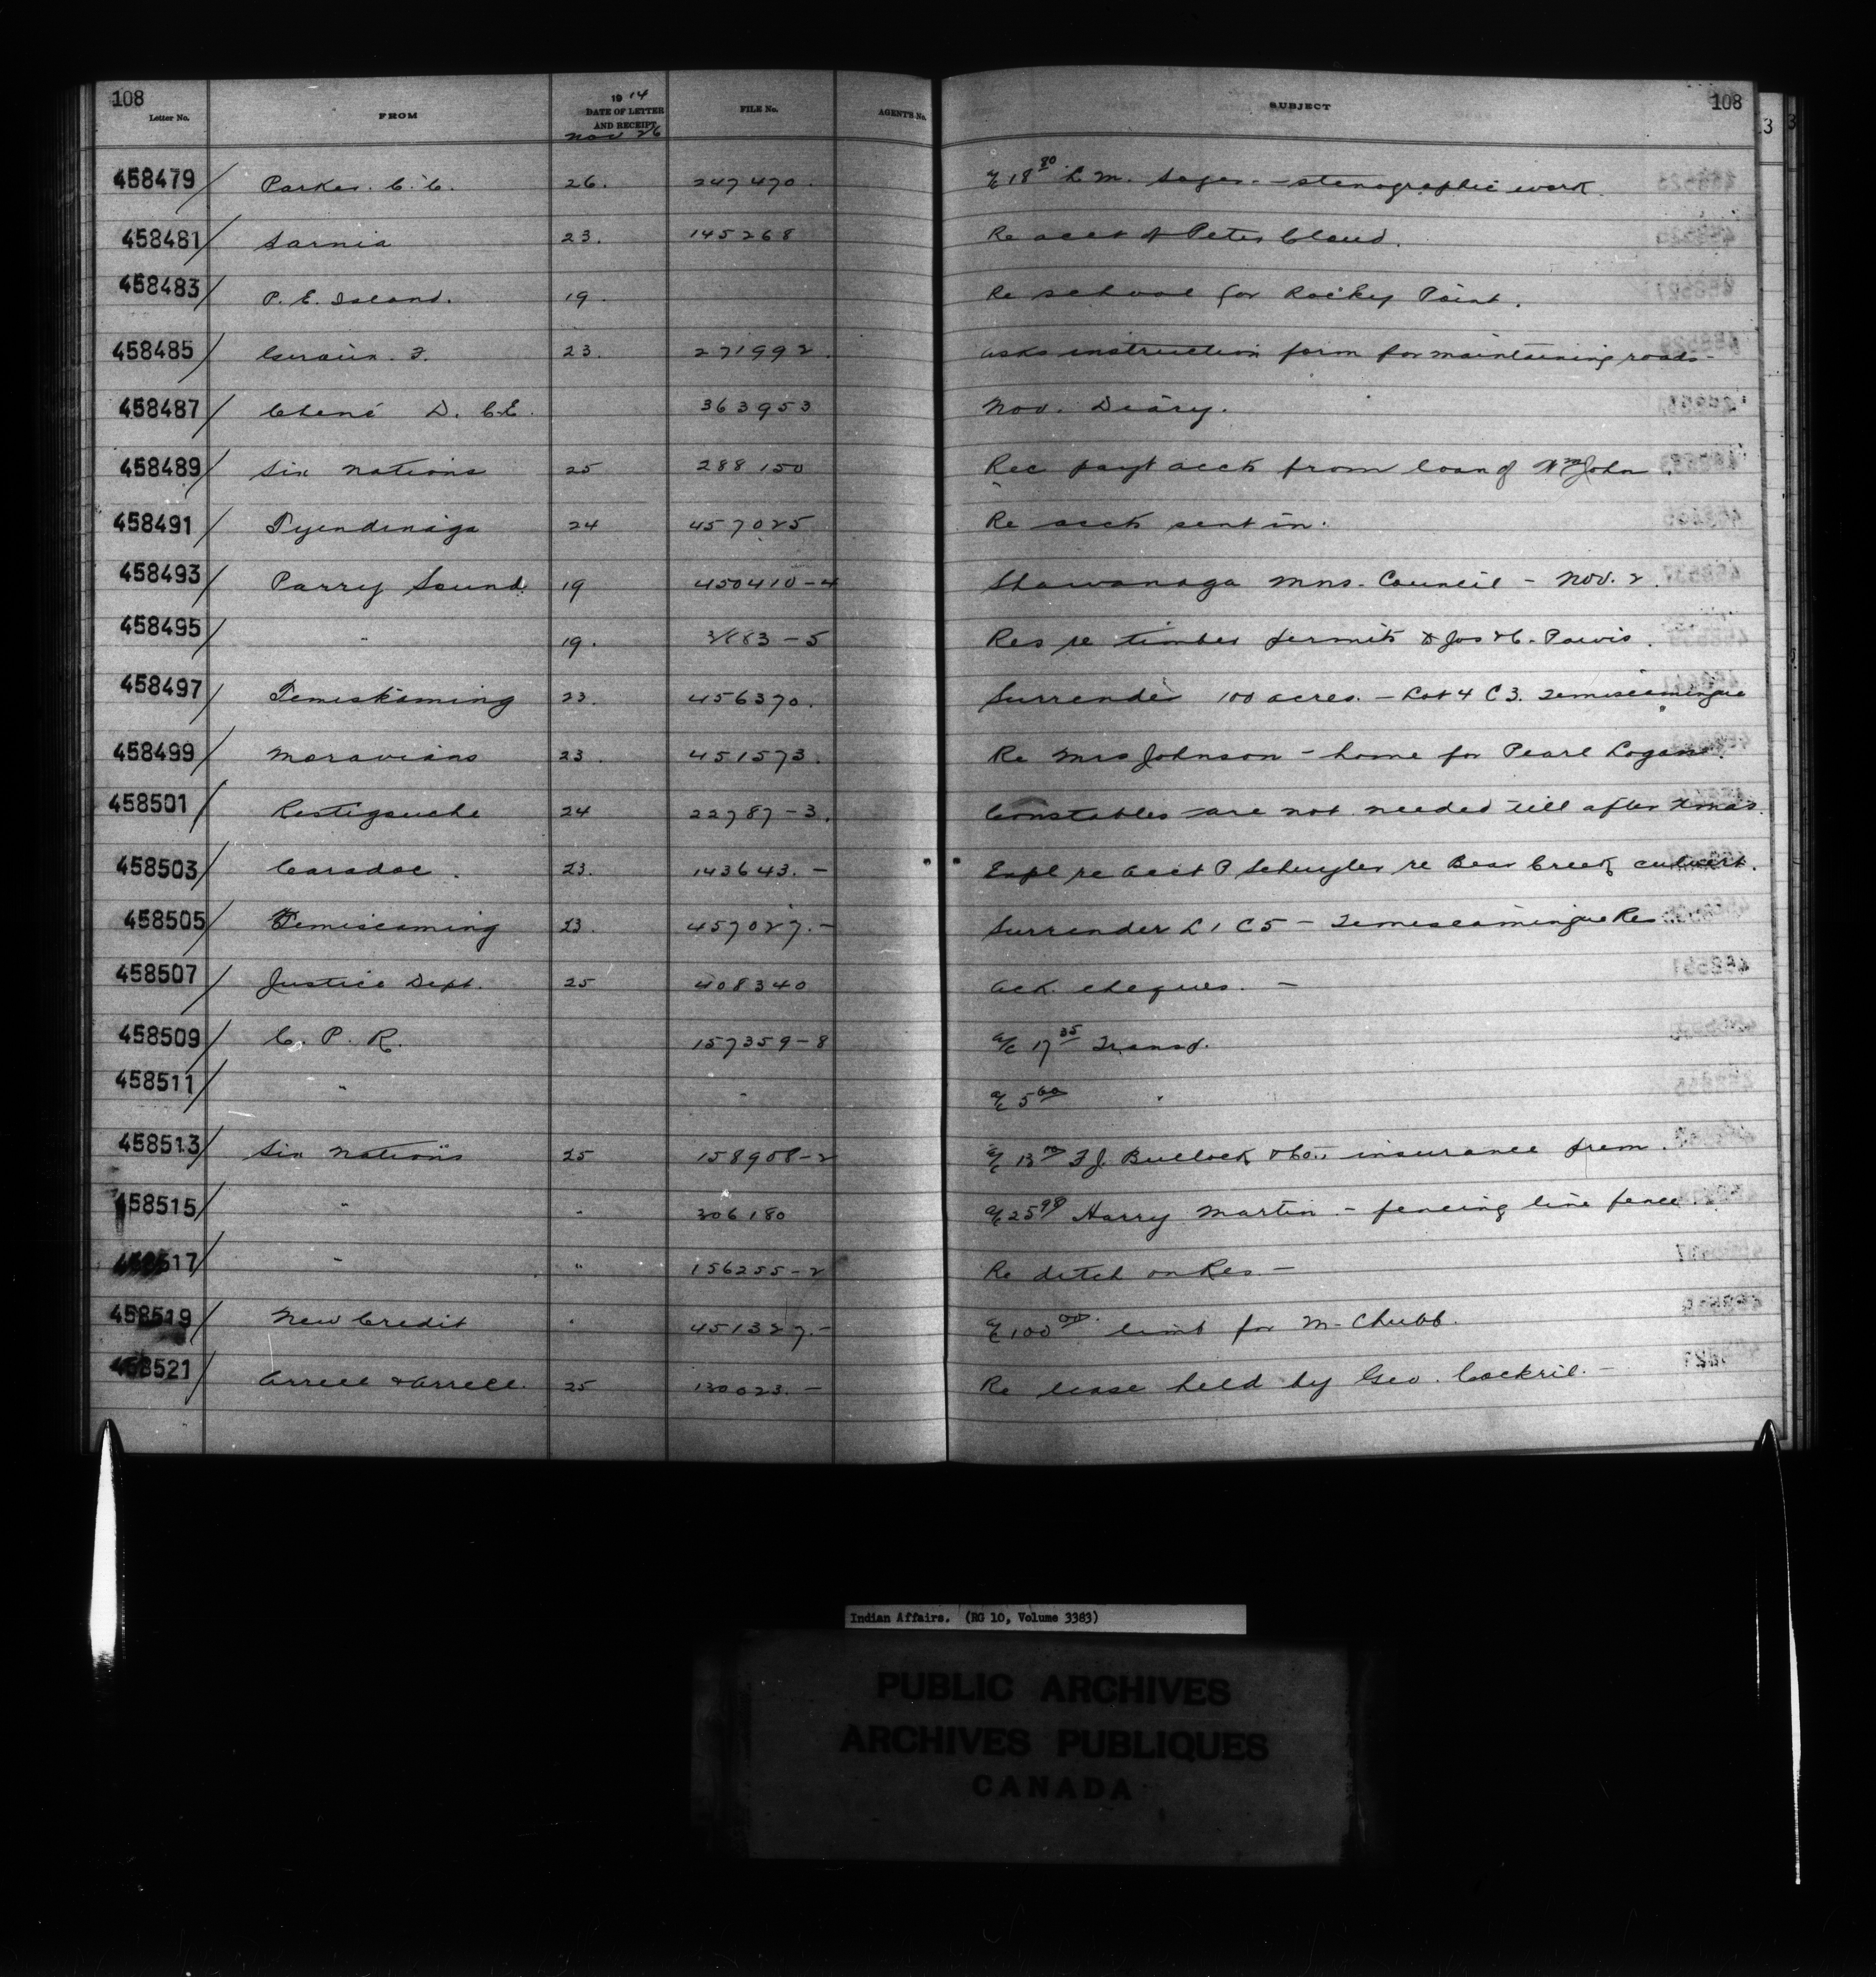 108 108
Letter No. FROM 1914 DATE OF LETTER AND RECEIPT FILE No. AGENT'S No. SUBJECT
Nov 26
458479/ Parker. C. C. 26. 247470. a/c 18 80 L. M. Sager. - stenographic work.
458481/ Sarnia 23. 145268 Re acct of Peter Cloud.
458483/ P. E. Island. 19. Re school for Rocky Point.
458485/ F. 23. 271992. asks instruction form for maintaining roads -
458487/ Chené D. C.E. 363953 Nov. Diary.
458489/ Six Nations 25 288150 Rec payt acct from loan of Wm John.
458491/ Tyendinaga 24 457025 Re acct sent in.
458493/ Parry Sound. 19 450410-4 Shawanaga Mns. Council - Nov. 2.
458495/ " 19. -5 Res re timber permits to Jos & C. Pawis.
458497/ Temiskaming 23. 456370. Surrender 100 acres. - Lot 4 C 3. Temiscamingue
458499/ Moravians 23. 451573. Re Mrs Johnson - home for Pearl Logan.
458501/ Restigouche 24 22787-3. Constables are not needed till after Xmas.
458503/ Caradoc. 23. 143643. - Expl re acct P Schuyler re Bear Creek culvert.
458505/ Temiscaming 23. 457027. - Surrender L 1 C 5 - Temiscamingue Res
458507/ Justice Dept. 25 408340 Ack. cheques. -
458509/ C. P. R. 157359-8 a/c 17 35 Transp.
458511/ " " a/c 5 60 "
458513/ Six Nations 25 158908-2 a/c 13 F. J. Bullock & Co. insurance prem.
458515/ " " 306180 a/c 25 98 Harry Martin - fencing line fence.
458517/ " " 156255-2 Re ditch on Res. -
458519/ New Credit " 451327. - a/c 100 00. limb for M. Chubb.
458521/ Arrell & Arrell. 25 130023. - Re lease held by Geo. Cockril. -
Indian Affairs. (RG 10, Volume 3383)
PUBLIC ARCHIVES
ARCHIVES PUBLIQUES
CANADA